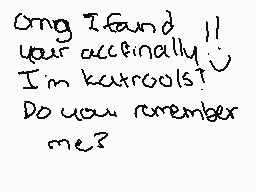 omg I found !!
your acc finally
I'm katrools!
Do you remember
me?